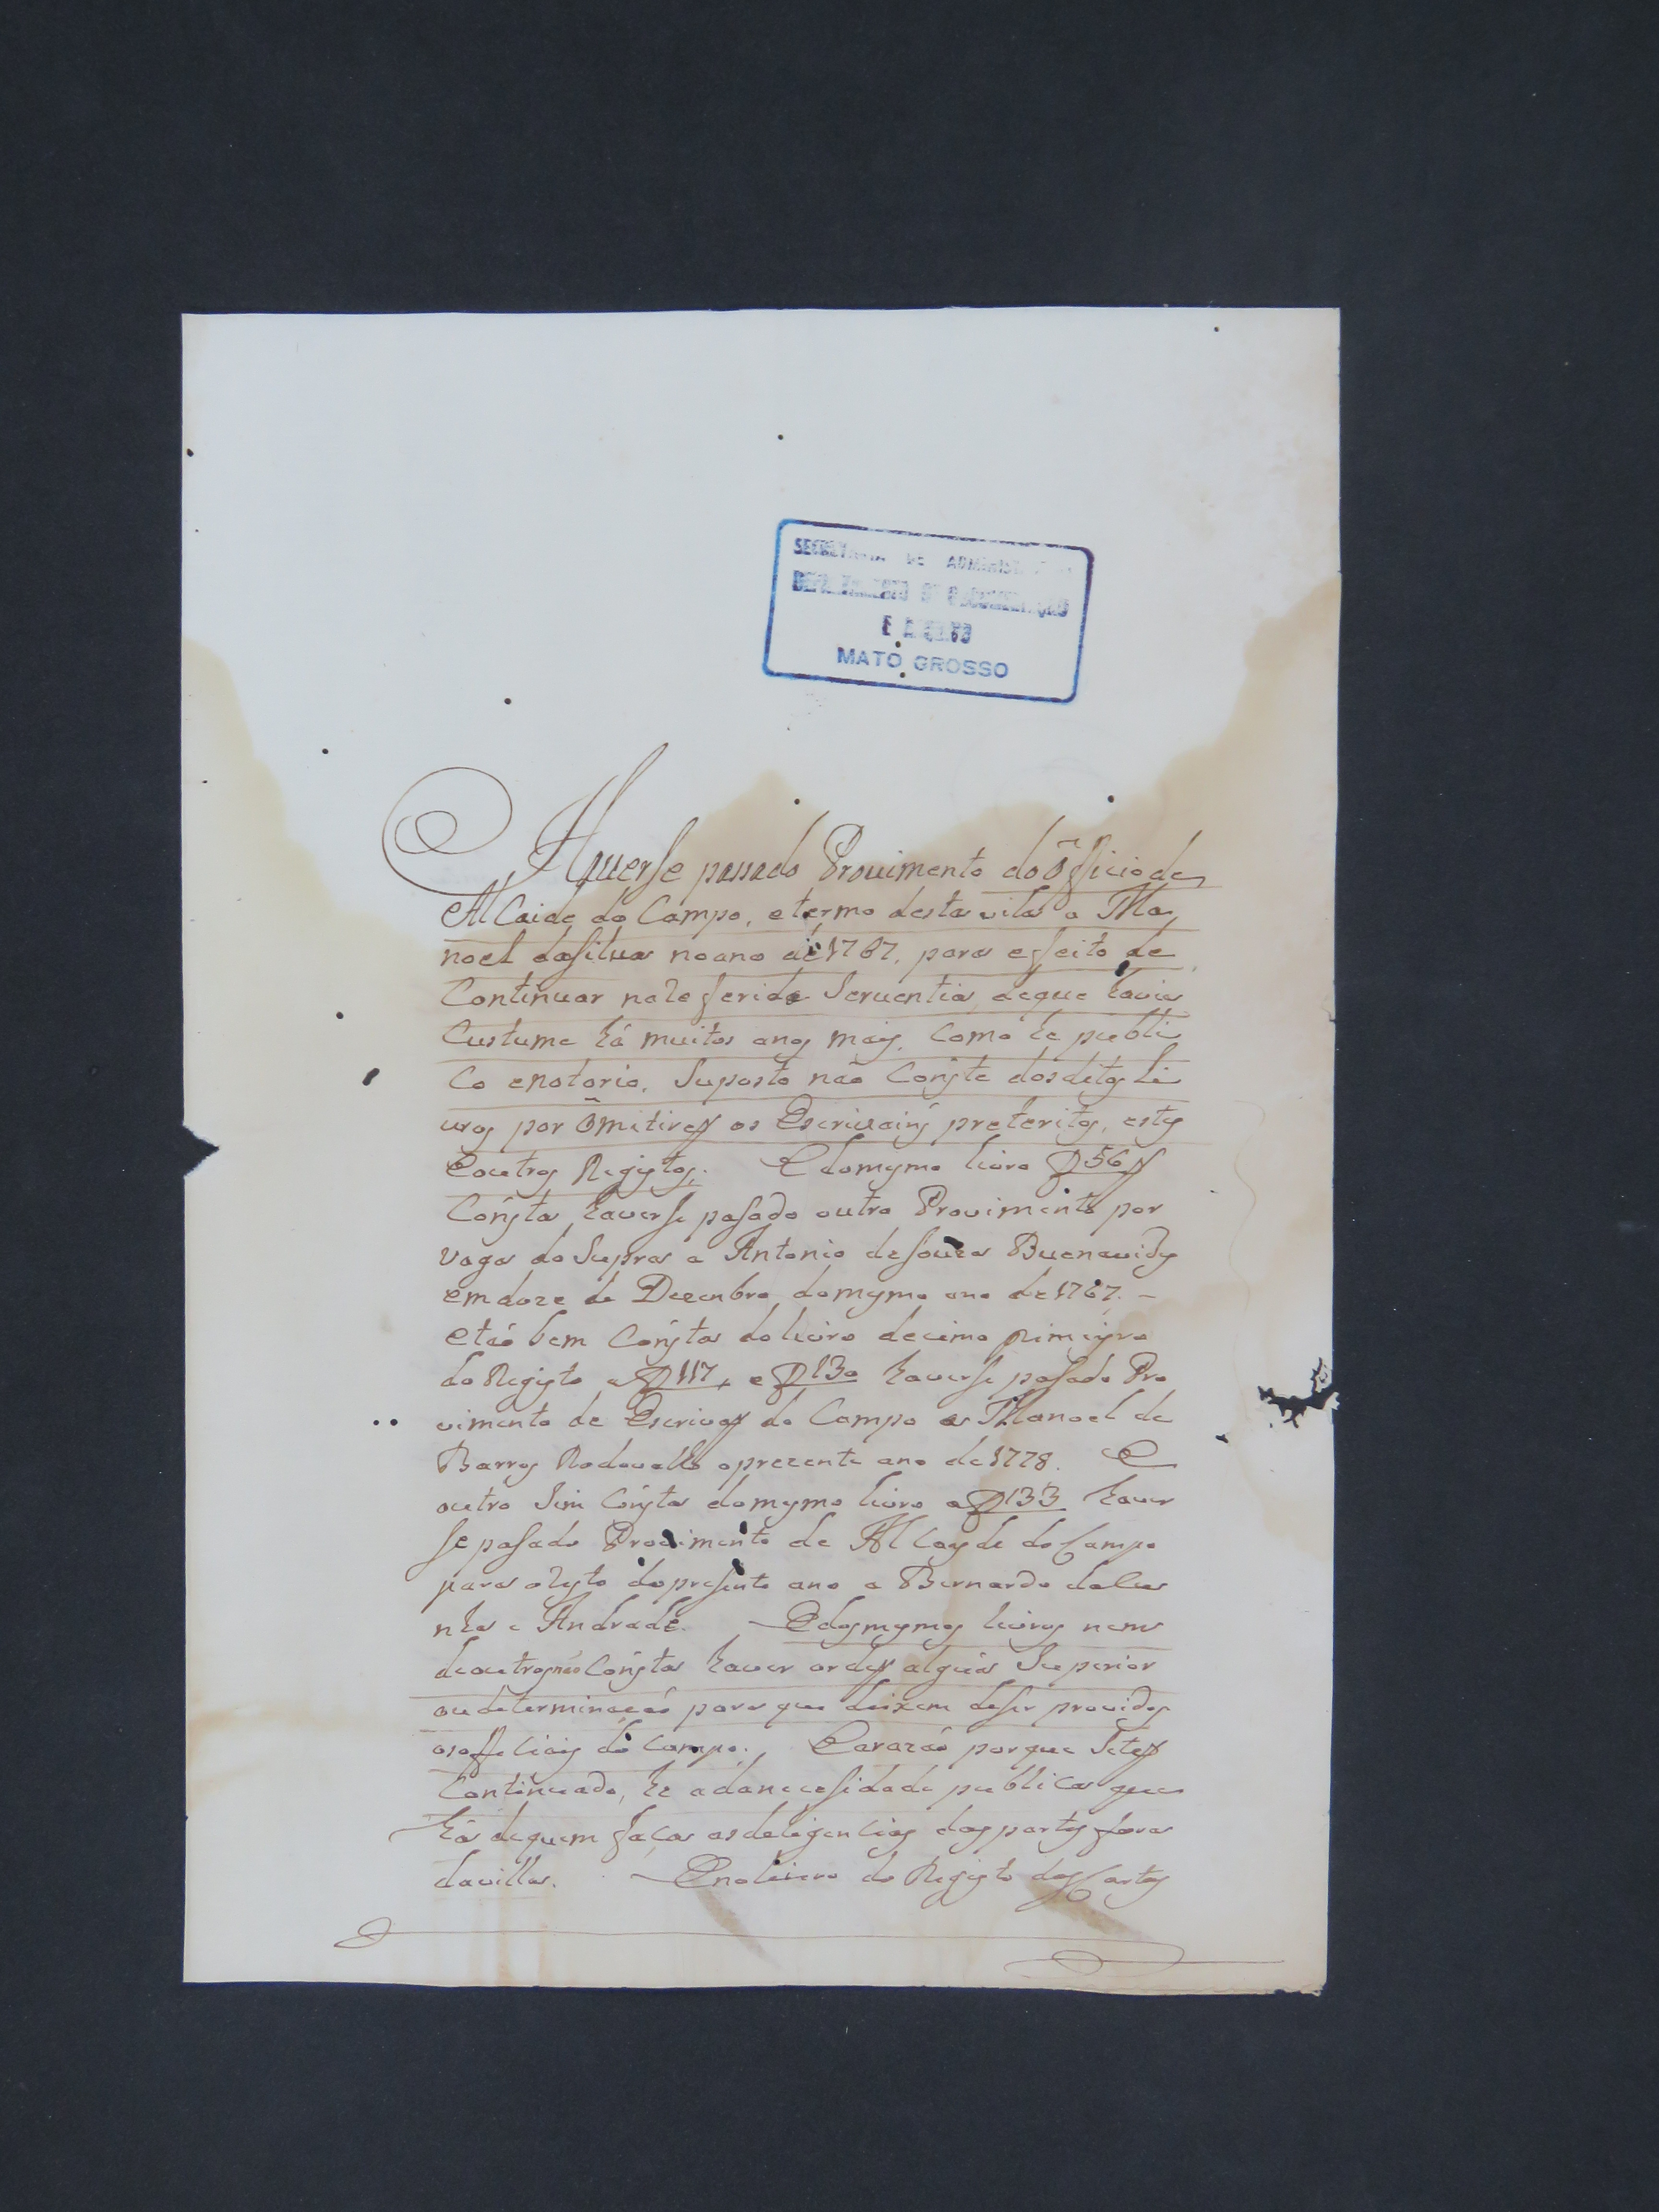 SECRETARIA DE ADMINISTRAÇÃO
DEPARTAMENTO DE DOCUMENTAÇÃO
E ARQUIVO
MATO GROSSO
Hauerse passado Prouimento do õfficio de
Al Caide do Campo, e termo desta vila a Ma,
noel da silua no ano de 1767. para effeito de
Continuar na Referida Seruentia, de que havia
Custume há muitos anos mais, Como he publi
Co enotorio, Suposto não Consta dos ditos Li
uros por õmitirem os Escrivains preteritos, estes
Eoutros Registos. E do mesmo livro f 56 v
Consta haverse pasado outro Provimento por
vaga do Supra a Antonio de souza Buenavides
em doze de Dezembro do mesmo ano de 1767. -
etão bem Consta do livro decimo primeyro
do Registo a f 117, e f 130 haverse pasado Pro
vimento de Escrivam do Campo a Manoel de
Barros Rodovalho o prezente ano de 1778. E
outro Sim Consta do mesmo livro a f 133 haver
se pasado Provimento de Al Cayde do Campo
para o resto do presente ano a Bernardo da Cu
nha e Andrade. E dos mesmos livros nem
de outros não Consta haver ordem alguã Superior
ou determinação para que deixem de ser providos
os officiais do Campo. E a razão porque Setem
Continuado, he a da necesidade publica que
há de quem faça as deligencias das partes fora
da villa. E no livro do Registo das Cartas